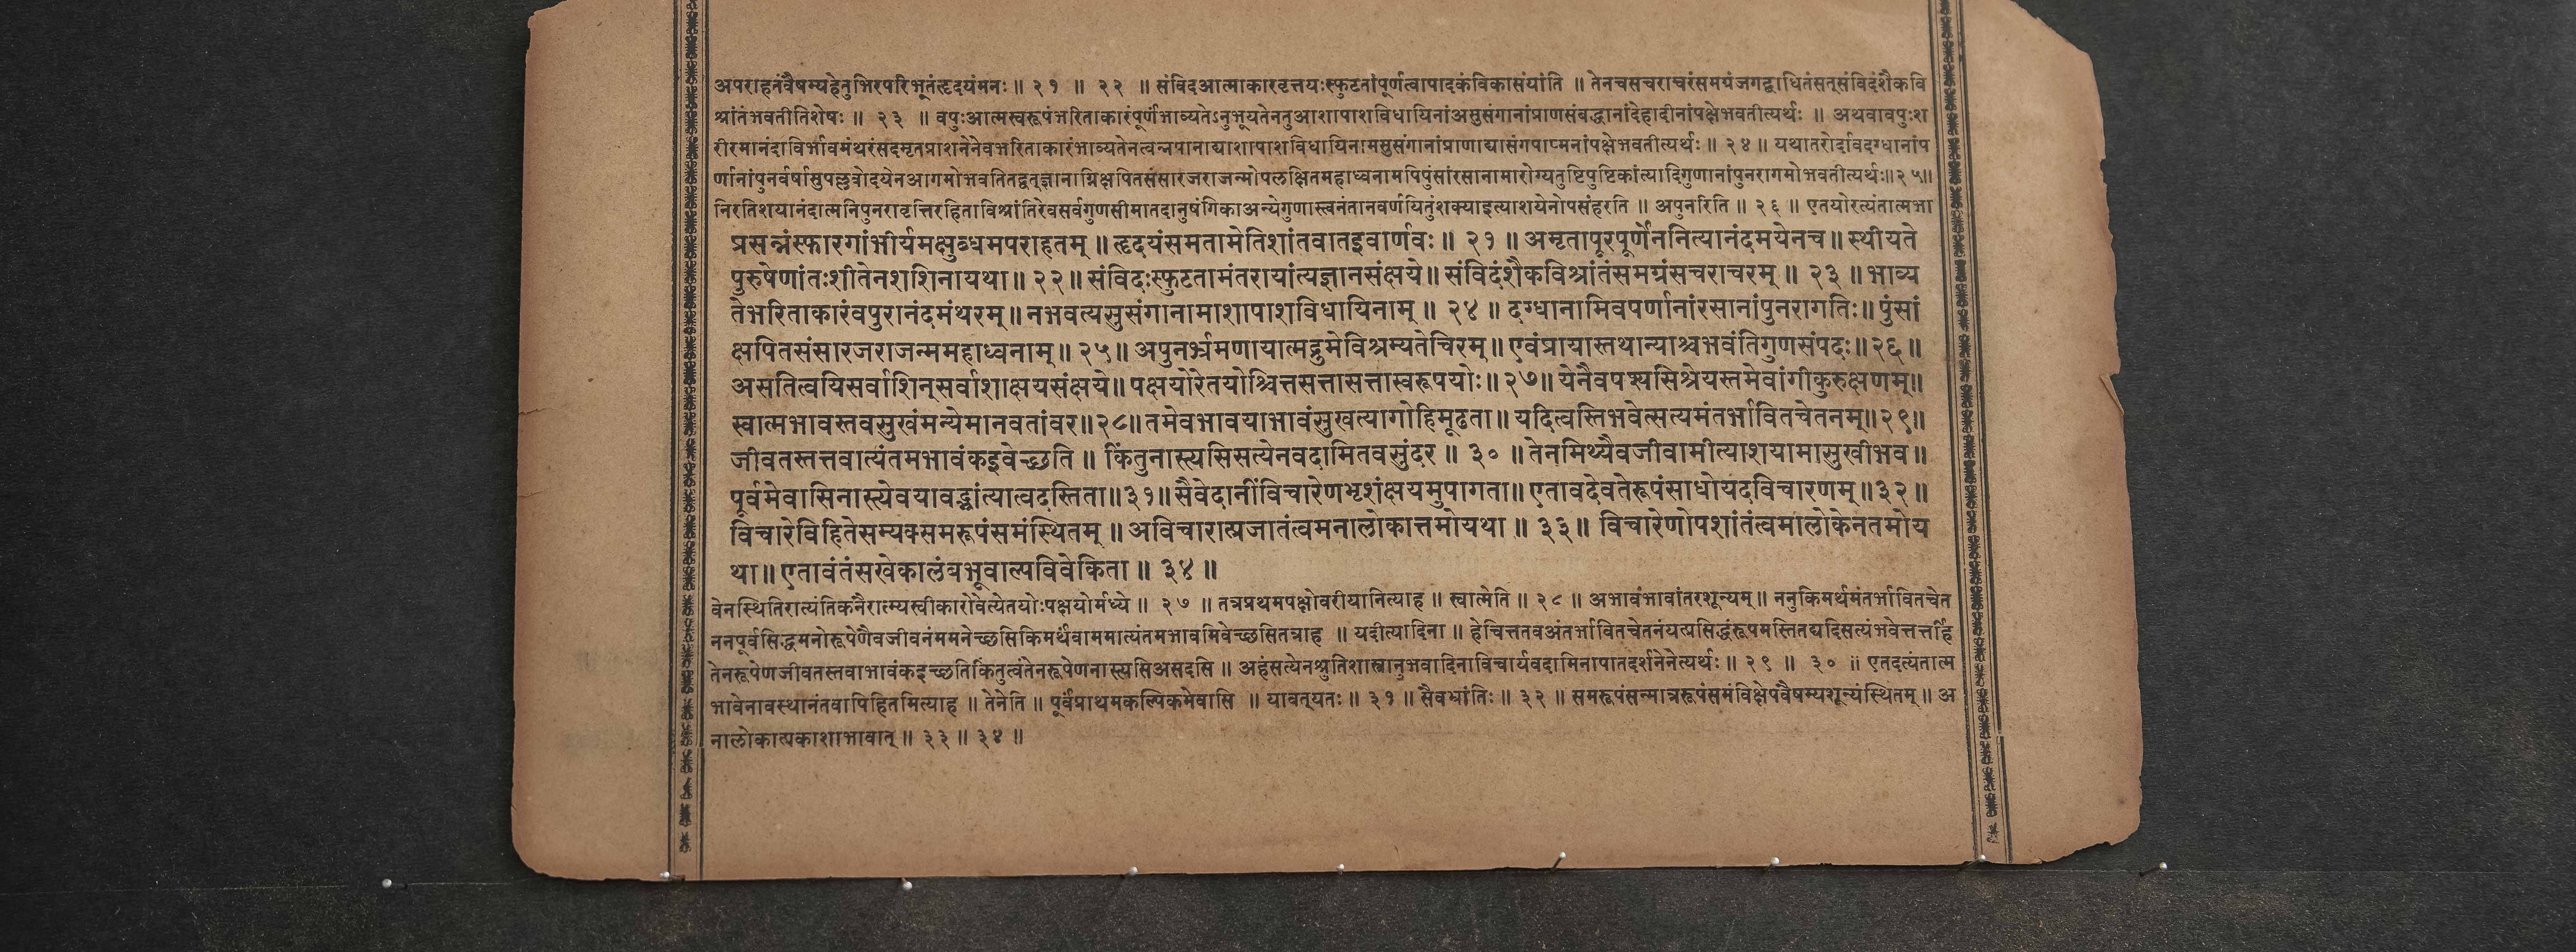 अपराहतंवैषम्यहेतुभिरपरिभूतंहृदयंमनः ॥ २१ ॥ २२ ॥ संविदआत्माकारवृत्तयःस्फुटतांपूर्णत्वापादकंविकासंयांति ॥ तेनचसचराचरंसमग्रंजगद्बाधितंसत्संविदंशैकवि
श्रांतंभवतीतिशेषः ॥ २३ ॥ वपुःआत्मस्वरूपंभरिताकारंपूर्णंभाव्यतेऽनुभूयतेनतुआशापाशविधायिनांअसुसंगानांप्राणसंबद्धानांदेहादीनांपक्षेभवतीत्यर्थः ॥ अथवावपुःश
रीरमानंदाविर्भावमंथरंसदमृतप्राशनेनेवभरिताकारंभाव्यतेनत्वन्नपानाद्याशापाशविधायिनामसुसंगानांप्राणाद्यासंगपाप्मनांपक्षेभवतीत्यर्थः ॥ २४ ॥ यथातरोर्दावदग्धानांप
र्णानांपुनर्वर्षासुपल्लवोदयेनआगमोभवतितद्वत्ज्ञानाग्निक्षपितसंसारजराजन्मोपलक्षितमहाध्वनामपिपुंसांरसानामारोग्यतुष्टिपुष्टिकांत्यादिगुणानांपुनरागमोभवतीत्यर्थः॥२५॥
निरतिशयानंदात्मनिपुनरावृत्तिरहिताविश्रांतिरेवसर्वगुणसीमातदानुषंगिकाअन्येगुणास्त्वनंतानवर्णयितुंशक्याइत्याशयेनोपसंहरति ॥ अपुनरिति ॥ २६ ॥ एतयोरत्यंतात्मभा
प्रसन्नंस्फारगांभीर्यमक्षुब्धमपराहतम् ॥ हृदयंसमतामेतिशांतवातइवार्णवः ॥ २१ ॥ अमृतापूरपूर्णेननित्यानंदमयेनच ॥ स्थीयते
पुरुषेणांतःशीतेनशशिनायथा ॥ २२ ॥ संविदःस्फुटतामंतरायांत्यज्ञानसंक्षये ॥ संविदंशैकविश्रांतंसमग्रंसचराचरम् ॥ २३ ॥ भाव्य
तेभरिताकारंवपुरानंदमंथरम् ॥ नभवत्यसुसंगानामाशापाशविधायिनाम् ॥ २४ ॥ दग्धानामिवपर्णानांरसानांपुनरागतिः ॥ पुंसां
क्षपितसंसारजराजन्ममहाध्वनाम् ॥ २५ ॥ अपुनर्भ्रमणायात्मद्रुमेविश्रम्यतेचिरम् ॥ एवंप्रायास्तथान्याश्चभवंतिगुणसंपदः ॥२६॥
असतित्वयिसर्वाशिन्सर्वाशाक्षयसंक्षये ॥ पक्षयोरेतयोश्चित्तसत्तासत्तास्वरूपयोः ॥२७॥ येनैवपश्यसिश्रेयस्तमेवांगीकुरुक्षणम् ॥
स्वात्मभावस्तवसुखंमन्येमानवतांवर॥२८॥ तमेवभावयाभावंसुखत्यागोहिमूढता ॥ यदित्वस्तिभवेत्सत्यमंतर्भावितचेतनम्॥२९॥
जीवतस्तत्तवात्यंतमभावंकइवेच्छति ॥ किंतुनास्त्यसिसत्येनवदामितवसुंदर ॥ ३० ॥ तेनमिथ्यैवजीवामीत्याशयामासुखीभव ॥
पूर्वमेवासिनास्त्येवयावद्भ्रांत्यात्वदस्तिता॥३१॥ सैवेदानींविचारेणभृशंक्षयमुपागता॥ एतावदेवतेरूपंसाधोयदविचारणम् ॥३२॥
विचारेविहितेसम्यक्समरूपंसमंस्थितम् ॥ अविचारात्प्रजातंत्वमनालोकात्तमोयथा ॥ ३३ ॥ विचारेणोपशांतंत्वमालोकेनतमोय
था ॥ एतावंतंसखेकालंबभूवाल्पविवेकिता ॥ ३४ ॥
वेनस्थितिरात्यंतिकनैरात्म्यस्वीकारोवेत्येतयोःपक्षयोर्मध्ये ॥ २७ ॥ तत्रप्रथमपक्षोवरीयानित्याह ॥ स्वात्मेति ॥ २८ ॥ अभावंभावांतरशून्यम् ॥ ननुकिमर्थमंतर्भावितचेत
ननपूर्वसिद्धमनोरूपेणैवजीवनंममनेच्छसिकिमर्थंवाममात्यंतमभावमिवेच्छसितत्राह ॥ यदीत्यादिना ॥ हेचित्ततवअंतर्भावितचेतनंयत्प्रसिद्धंरूपमस्तितद्यदिसत्यंभवेत्तर्त्तर्हि
तेनरूपेणजीवतस्तवाभावंकइच्छतिकिंतुत्वंतेनरूपेणनास्त्यसिअसदसि ॥ अहंसत्येनश्रुतिशास्त्रानुभवादिनाविचार्यवदामिनापातदर्शनेनेत्यर्थः ॥ २९ ॥ ३० ॥ एतदत्यंतात्म
भावेनावस्थानंतवापिहितमित्याह ॥ तेनेति ॥ पूर्वंप्राथमकल्पिकमेवासि ॥ यावत्यतः ॥ ३१ ॥ सैवभ्रांतिः ॥ ३२ ॥ समरूपंसन्मात्ररूपंसमंविक्षेपवैषम्यशून्यंस्थितम् ॥ अ
नालोकात्प्रकाशाभावात् ॥ ३३ ॥ ३४ ॥